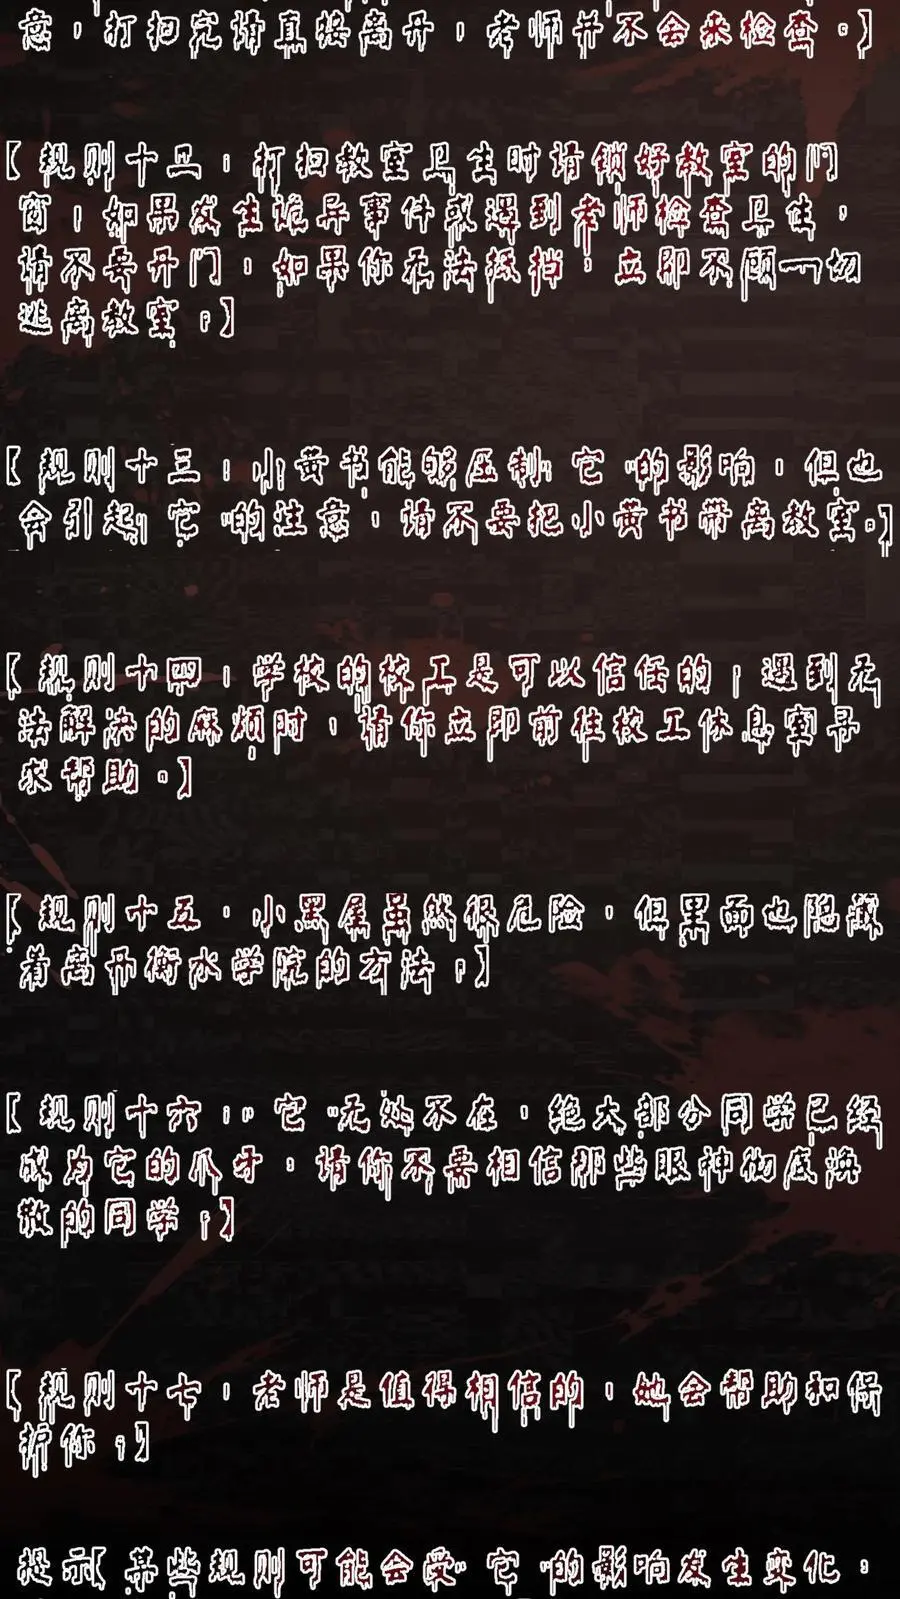 意，打扫完请直接离开，老师并不会来检查。】
【规则十二：打扫教室卫生时请锁好教室的门
窗，如果发生诡异事件或遇到老师检查卫生，
请不要开门，如果你无法抵挡，立即不顾一切
逃离教室。】
【规则十三：小黄书能够压制“它”的影响，但也
会引起“它”的注意，请不要把小黄书带离教室。】
【规则十四：学校的校工是可以信任的，遇到无
法解决的麻烦时，请你立即前往校工休息室寻
求帮助。】
【规则十五：小黑屋虽然很危险，但里面也隐藏
着离开衡水学院的方法。】
【规则十六：“它”无处不在，绝大部分同学已经
成为它的爪牙，请你不要相信那些眼神彻底涣
散的同学。】
【规则十七：老师是值得相信的，她会帮助和保
护你。】
提示【某些规则可能会受“它”的影响发生变化，